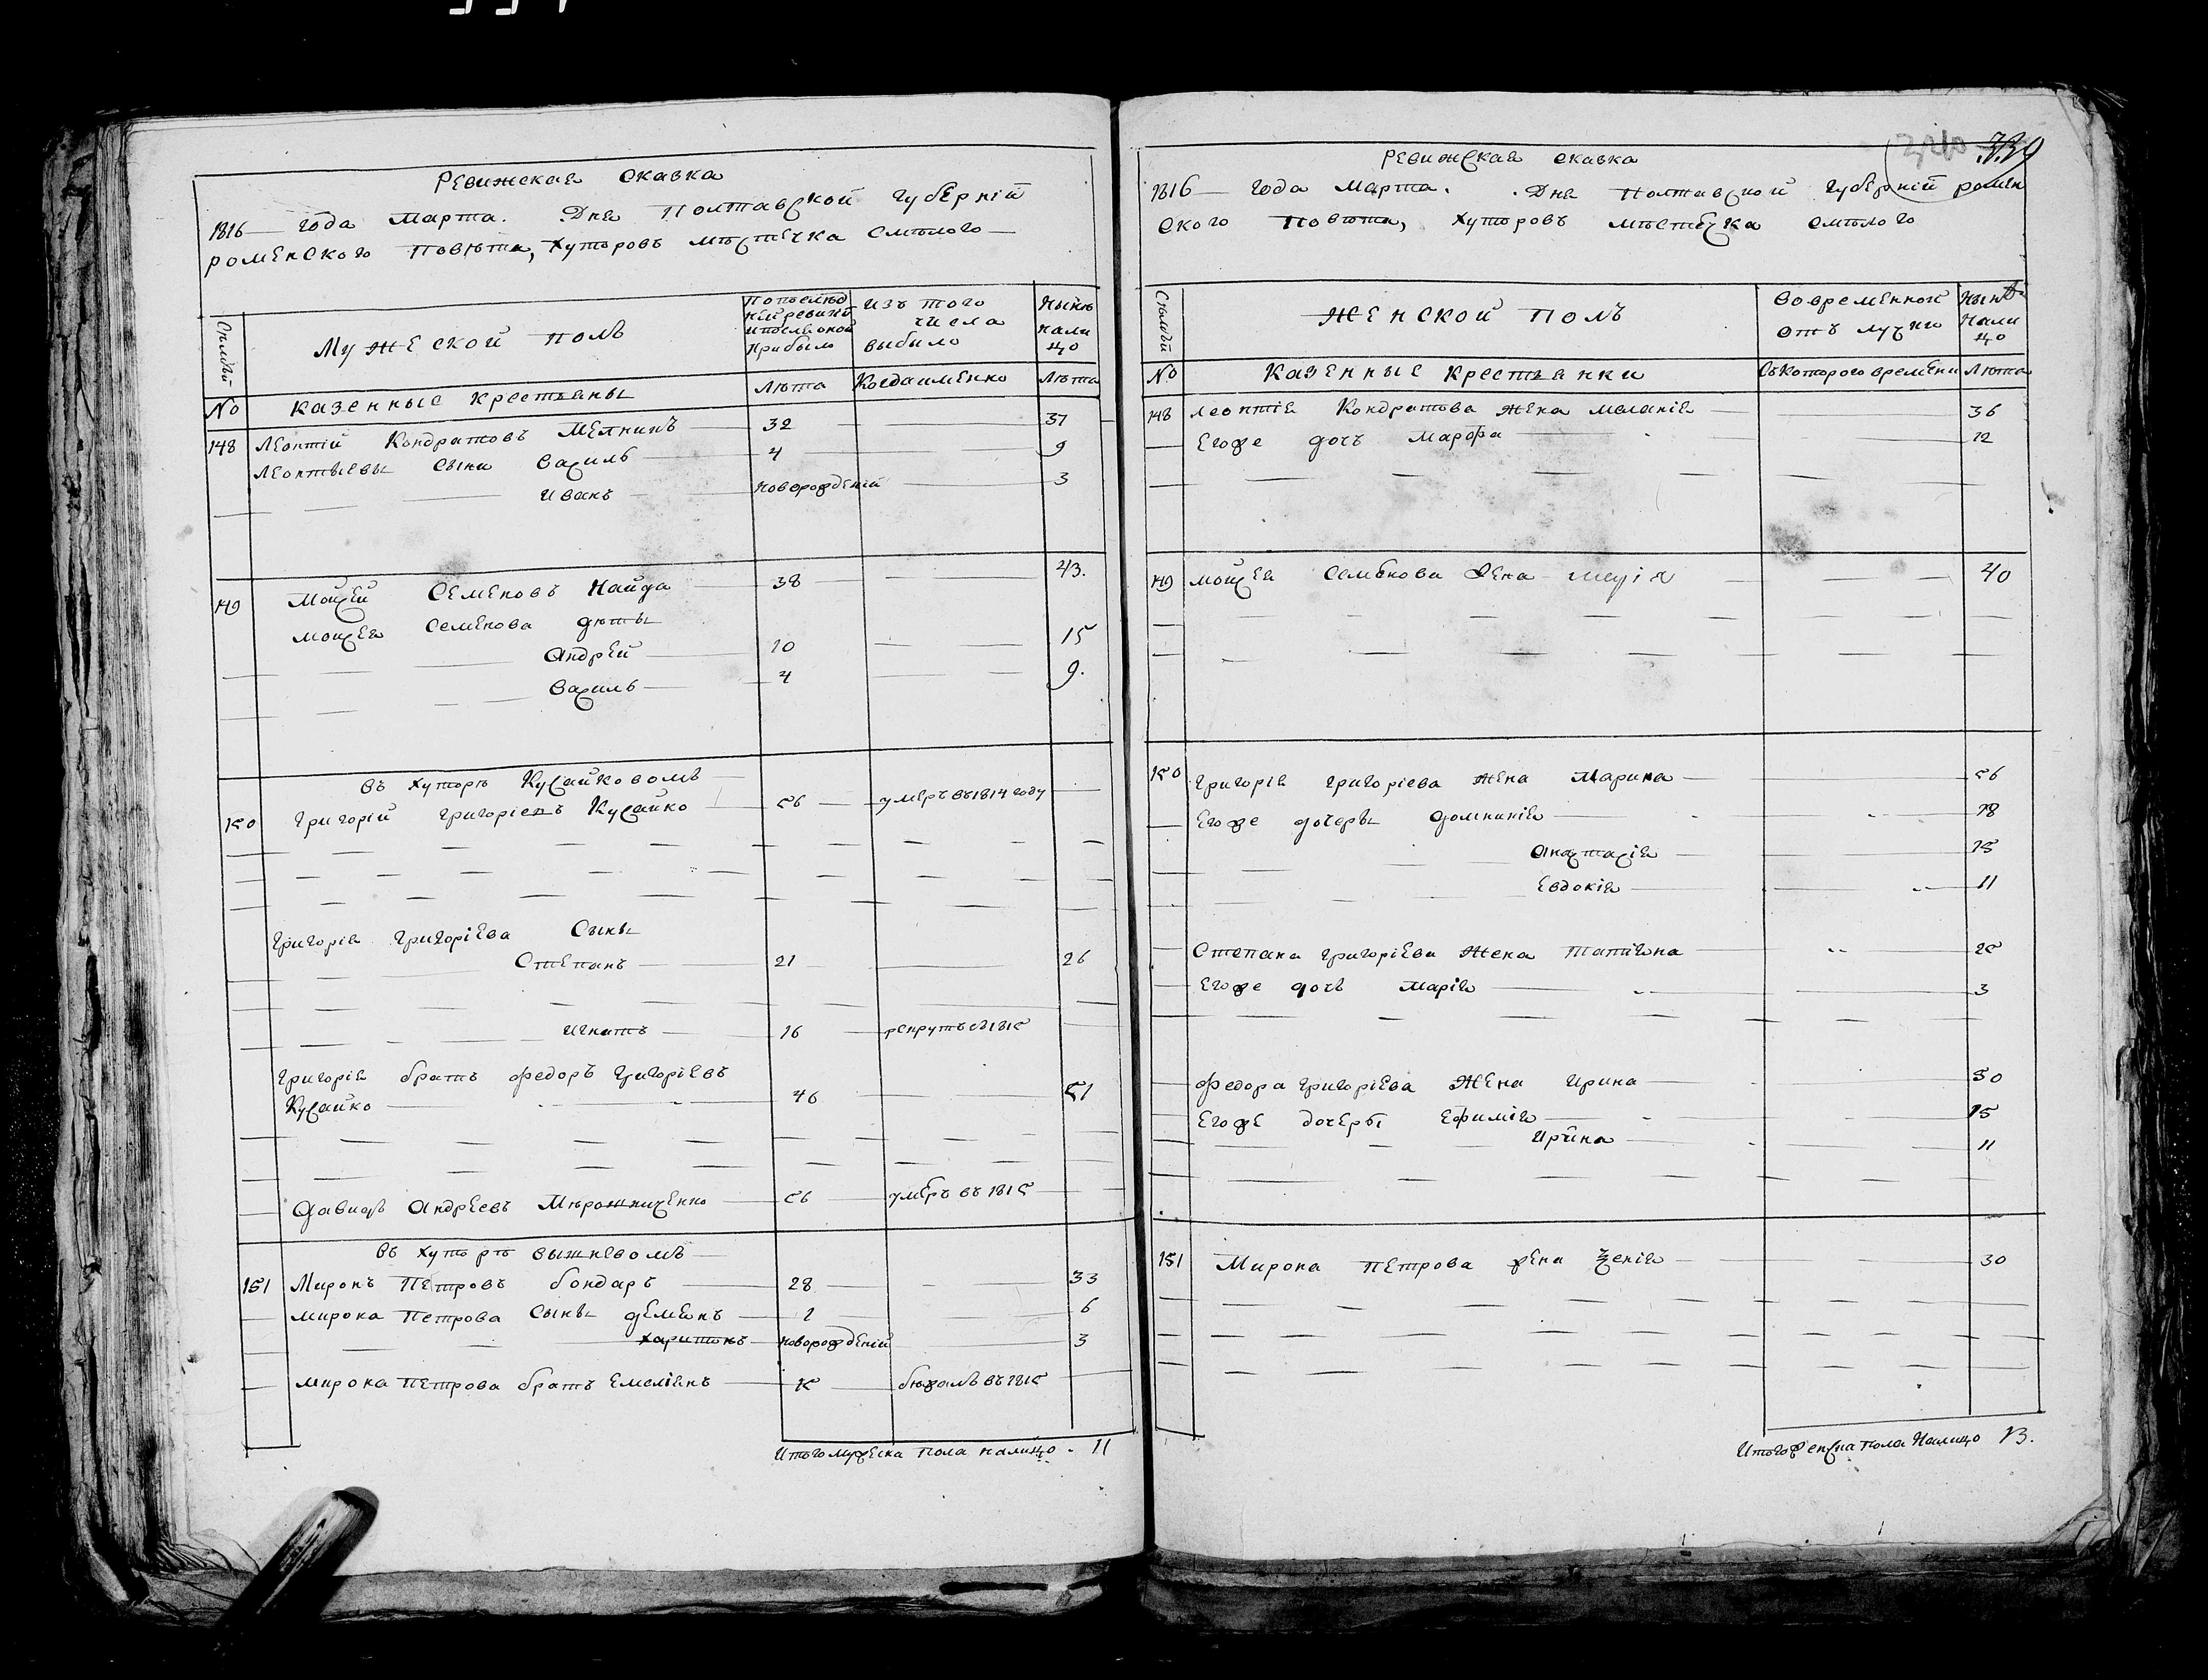 Ревижская сказка
1816 года марта. Дня Полтавской губерній
роменского повѣта, хуторовъ мѣстечка смѣлого
Семьи
Мужеской полъ
по послѣд
ней ревизіи
и послѣ оной
прибыло
изъ того
числа
выбыло
нынѣ
нали
цо
№
казенные крестьяны
лѣта
когда именно
лѣта
148 Леонтій Кондратовъ Мелникъ 32 37
Леонтьевы сыни Василь 4 9
Иванъ новорожденій 3
149 Мойсей Семеновъ Найда 38 43.
Мойсея Семенова дѣты
Андрей 10 15
Василь 4 9.
въ хуторѣ Кусайковомъ
150 Григорій Григоріевъ Кусайко 56 умеръ въ 1814 году
Григорія Григоріева Сыны
Степанъ 21 26
Игнатъ 16 рекрутъ в 1815
Григорія братъ федоръ Григоріевъ
Кусайко 46 51
Давидъ Андреевъ Мѣрошниченко 56 умеръ въ 1815
въ хуторѣ вышневомъ
151 Миронъ Петровъ бондаръ 28 33
мирона Петрова Сыны демянъ 1 6
харитонъ новорожденій 3
мирона Петрова братъ Емеліянъ 15 бѣжалъ въ 1815
Итого мужеска пола налицо . 11
339
Ревижская сказка
1816 года Марта. Дня Полтавской губерній ромен
ского повѣта, хуторовъ мѣстечка смѣлого
Семьи
Женской полъ
во временной
отълучки
нынѣ
нали
цо
№
казенные крестьянки
съ которого времени
лѣта
148 леонтія Кондратова жена меланія 36
Егоже дочъ Марфа 12
149 мойсея Семенова жена марія 40
150 Григорія Григоріева жена Марина 56
Егоже дочеры домникія 18
Анастасія 15
Евдокія 11
Степана Григоріева жена татіяна 25
Егоже дочъ марія 3
федора Григоріева жена Ирина 50
Егоже дочеры Ефимія 15
Ирина 11
151 Мирона Петрова жена Ѯенія 30
Итого женска пола налицо 13.